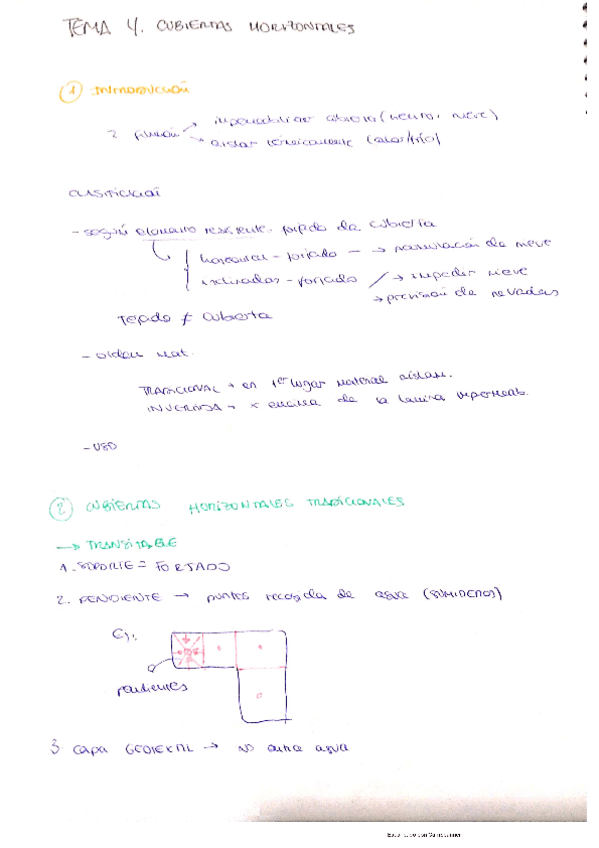 TEMA 4. CUBIERTAS HORIZONTALES
① INTRODUCCIÓN
2 función → impermeabilizar cubierta (lluvia, nieve)
→ aislar térmicamente (calor/frío)
CLASIFICACIÓN
- según elemento resistente. forjado de cubierta
horizontal - forjado - → acumulación de nieve
inclinadas - forjado / → impedir nieve
→ previsión de nevadas
Tejado ≠ cubierta
- orden mat.
TRADICIONAL → en 1er lugar material aislam.
INVERTIDA → x encima de la lámina impermeab.
- USO
② CUBIERTAS HORIZONTALES TRADICIONALES
→ TRANSITABLE
1. SOPORTE = FORJADO
2. PENDIENTE → puntos recogida de agua (SUMIDEROS)
Ej:
pendientes
3 capa GEOTEXTIL → NO entra agua